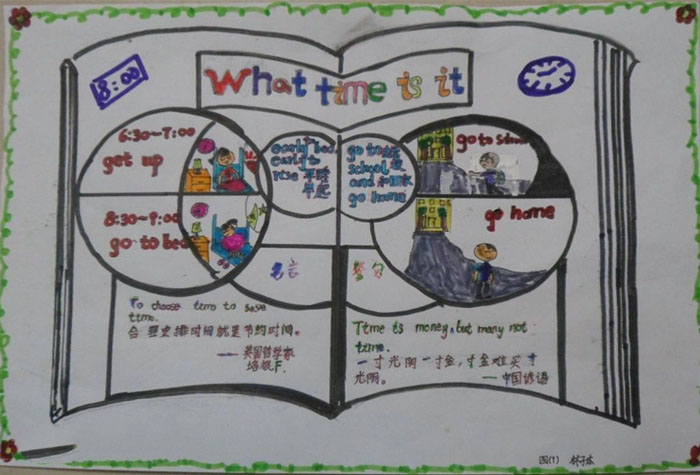 8:00
What time is it
6:30~7:00
get up
8:30~9:00
go to bed
early bed
early to
rise 早睡
早起
go to
school
and
go home
go to school
go home
名言
To choose time to save
time.
合理安排时间就是节约时间。
——英国哲学家
培根F.
Time is money, but many not
time.
一寸光阴一寸金,寸金难买寸
光阴。
——中国谚语
图(1)